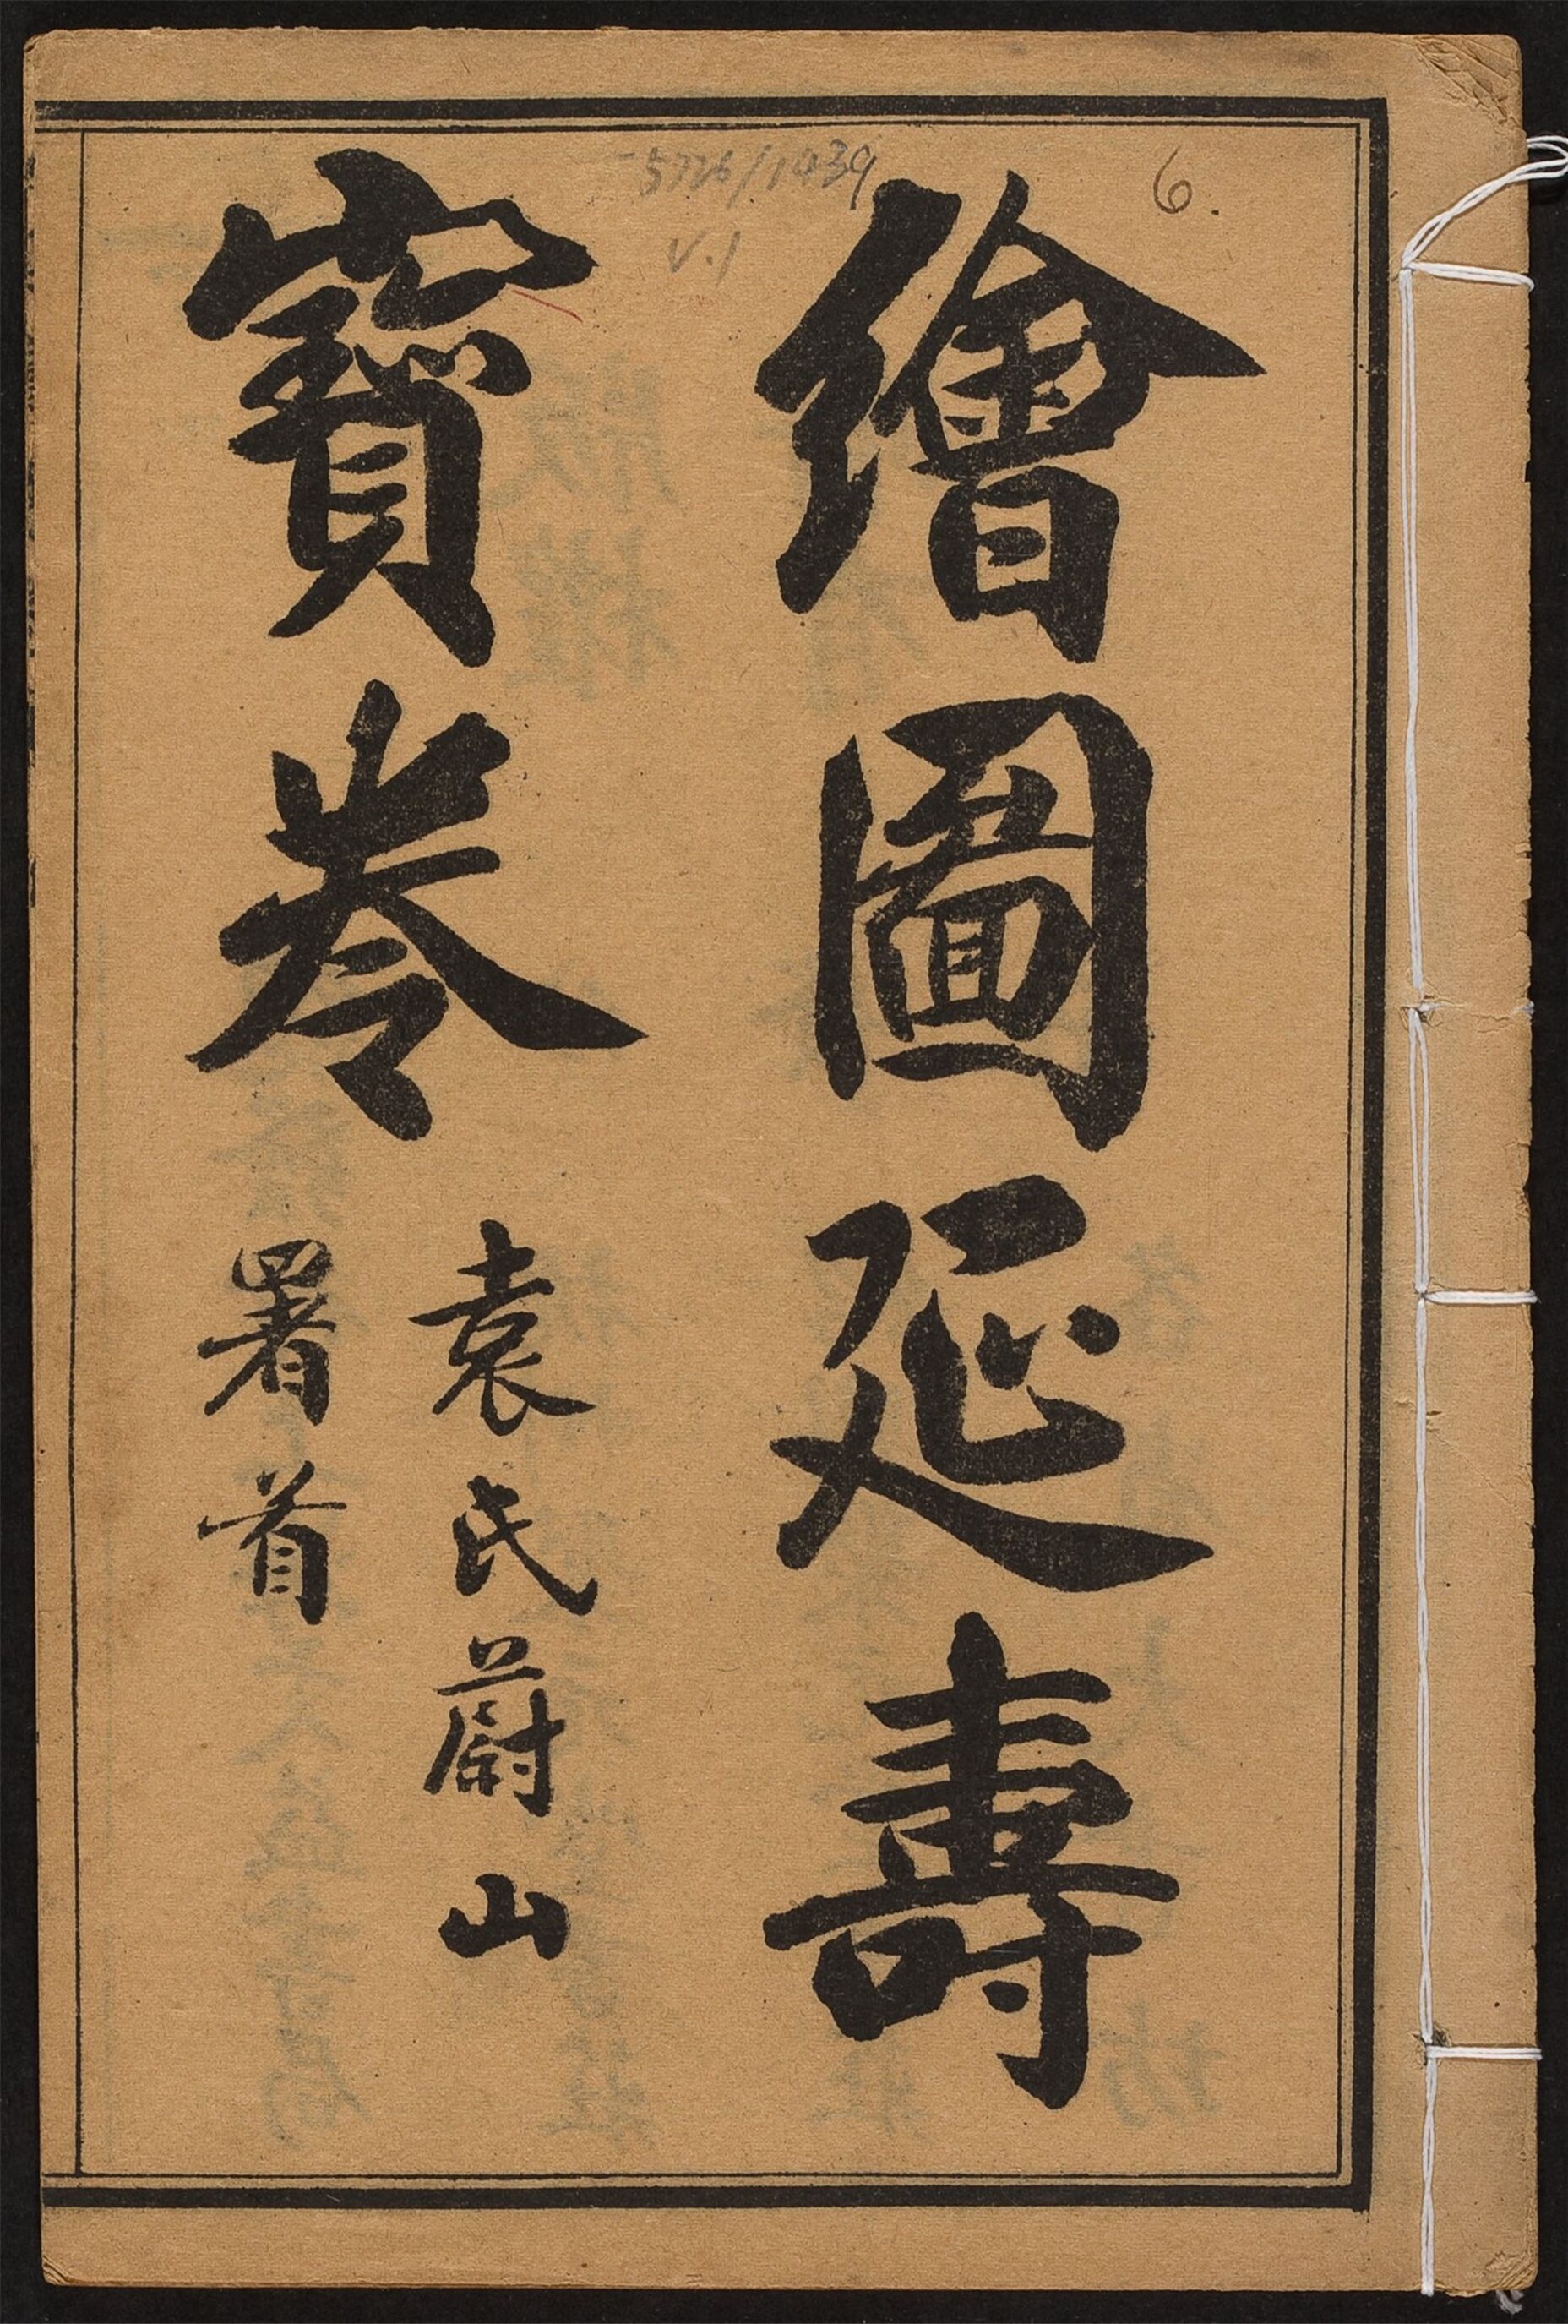 6.
5726/1439
v.1
繪圖延壽
寶卷
袁氏蔚山
署首